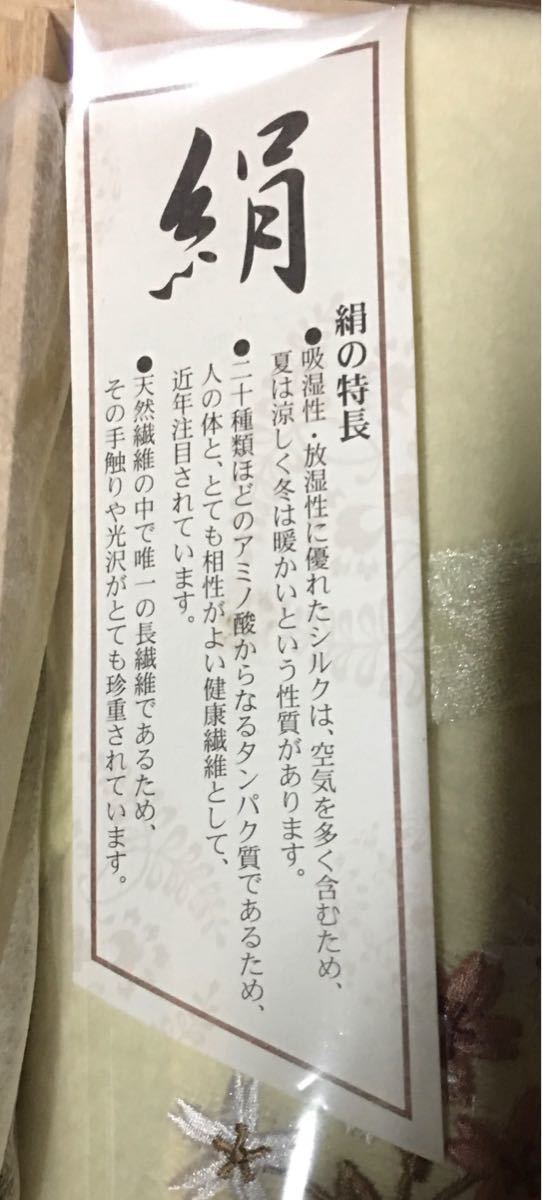 絹
絹の特長
●吸湿性・放湿性に優れたシルクは、空気を多く含むため、
夏は涼しく冬は暖かいという性質があります。
●二十種類ほどのアミノ酸からなるタンパク質であるため、
人の体と、とても相性がよい健康繊維として、
近年注目されています。
●天然繊維の中で唯一の長繊維であるため、
その手触りや光沢がとても珍重されています。